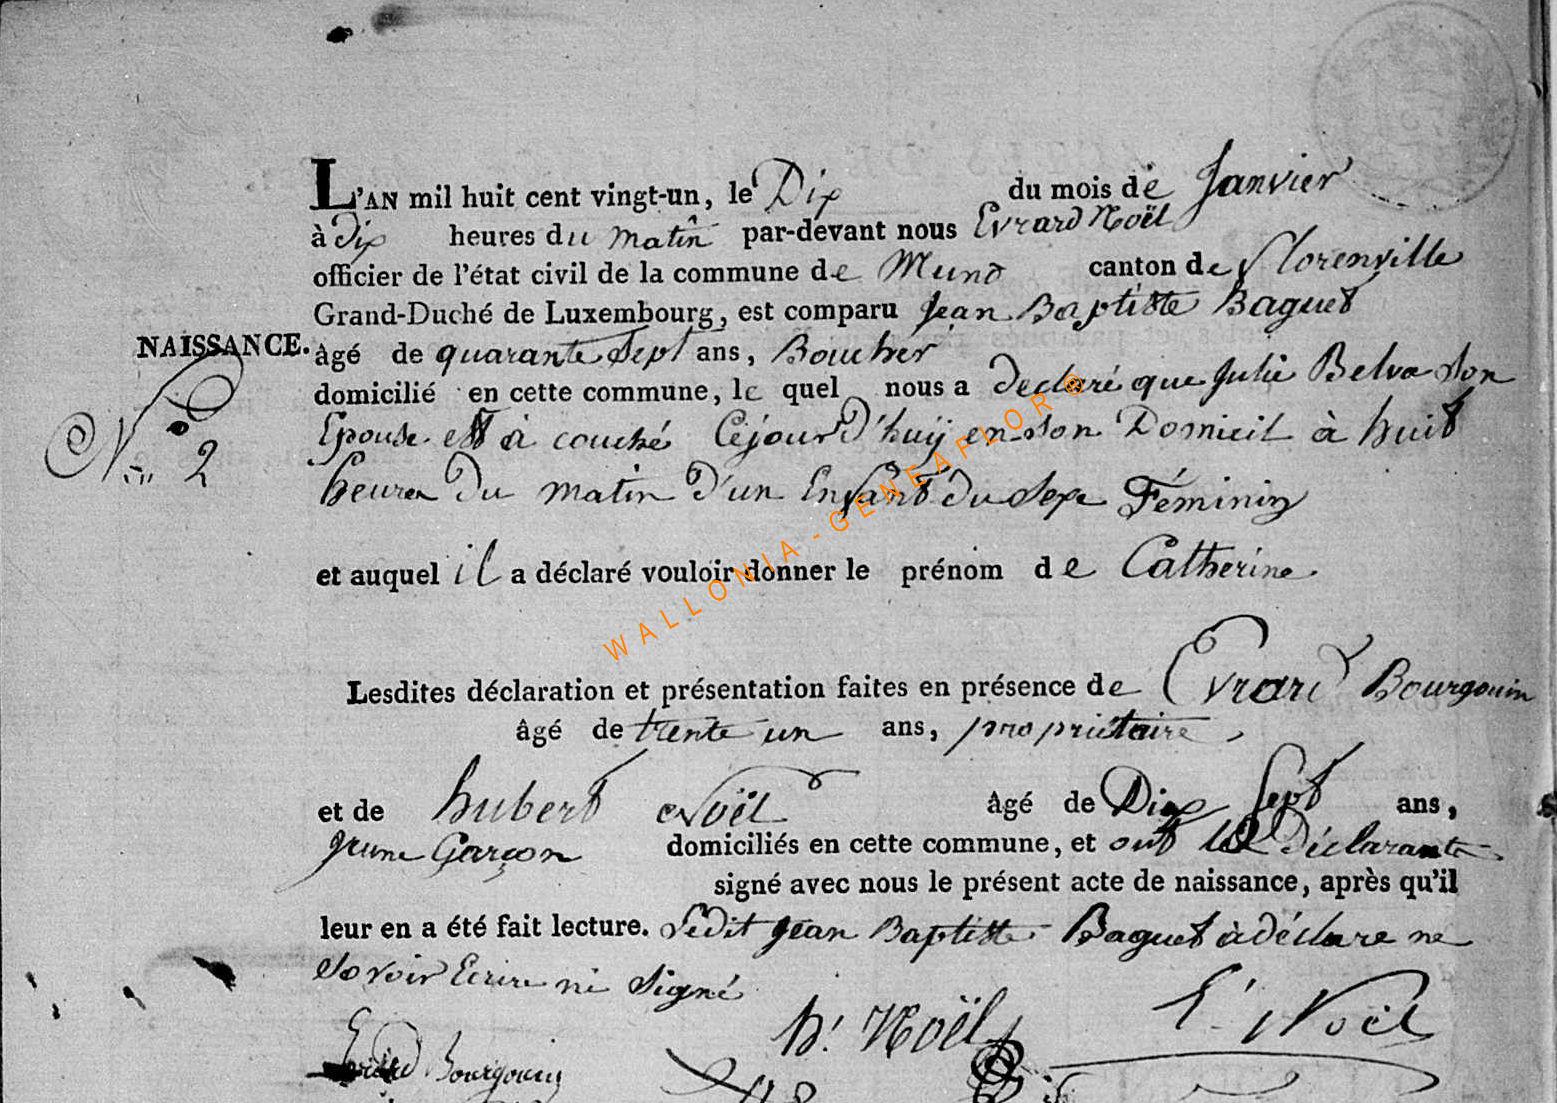 L'AN mil huit cent vingt-un, le Dix du mois de Janvier
à Dix heures du matin par-devant nous Evrard Noël
officier de l'état civil de la commune de Muno canton de Florenville
Grand-Duché de Luxembourg, est comparu Jean Baptiste Baguet
NAISSANCE.
âgé de quarante Sept ans, Boucher
domicilié en cette commune, le quel nous a declaré que Julie Belva Son
N.° 2
Epouse est à couché Cejour D'huy en Son Domicil à huit
heures Du matin D'un Enfant du Sexe Féminin
et auquel il a déclaré vouloir donner le prénom de Catherine.
WALLONIA - GENEAFLOR ®
Lesdites déclaration et présentation faites en présence de Evrard Bourgouin
âgé de trente un ans, propriétaire,
et de hubert Noël âgé de Dix Sept ans,
jeune Garçon domiciliés en cette commune, et ont les Déclarants
signé avec nous le présent acte de naissance, après qu'il
leur en a été fait lecture. Ledit Jean Baptiste Baguet à déclare ne
Savoir Ecrire ni Signé
h! Noël E. Noël
Evrard Bourgouin